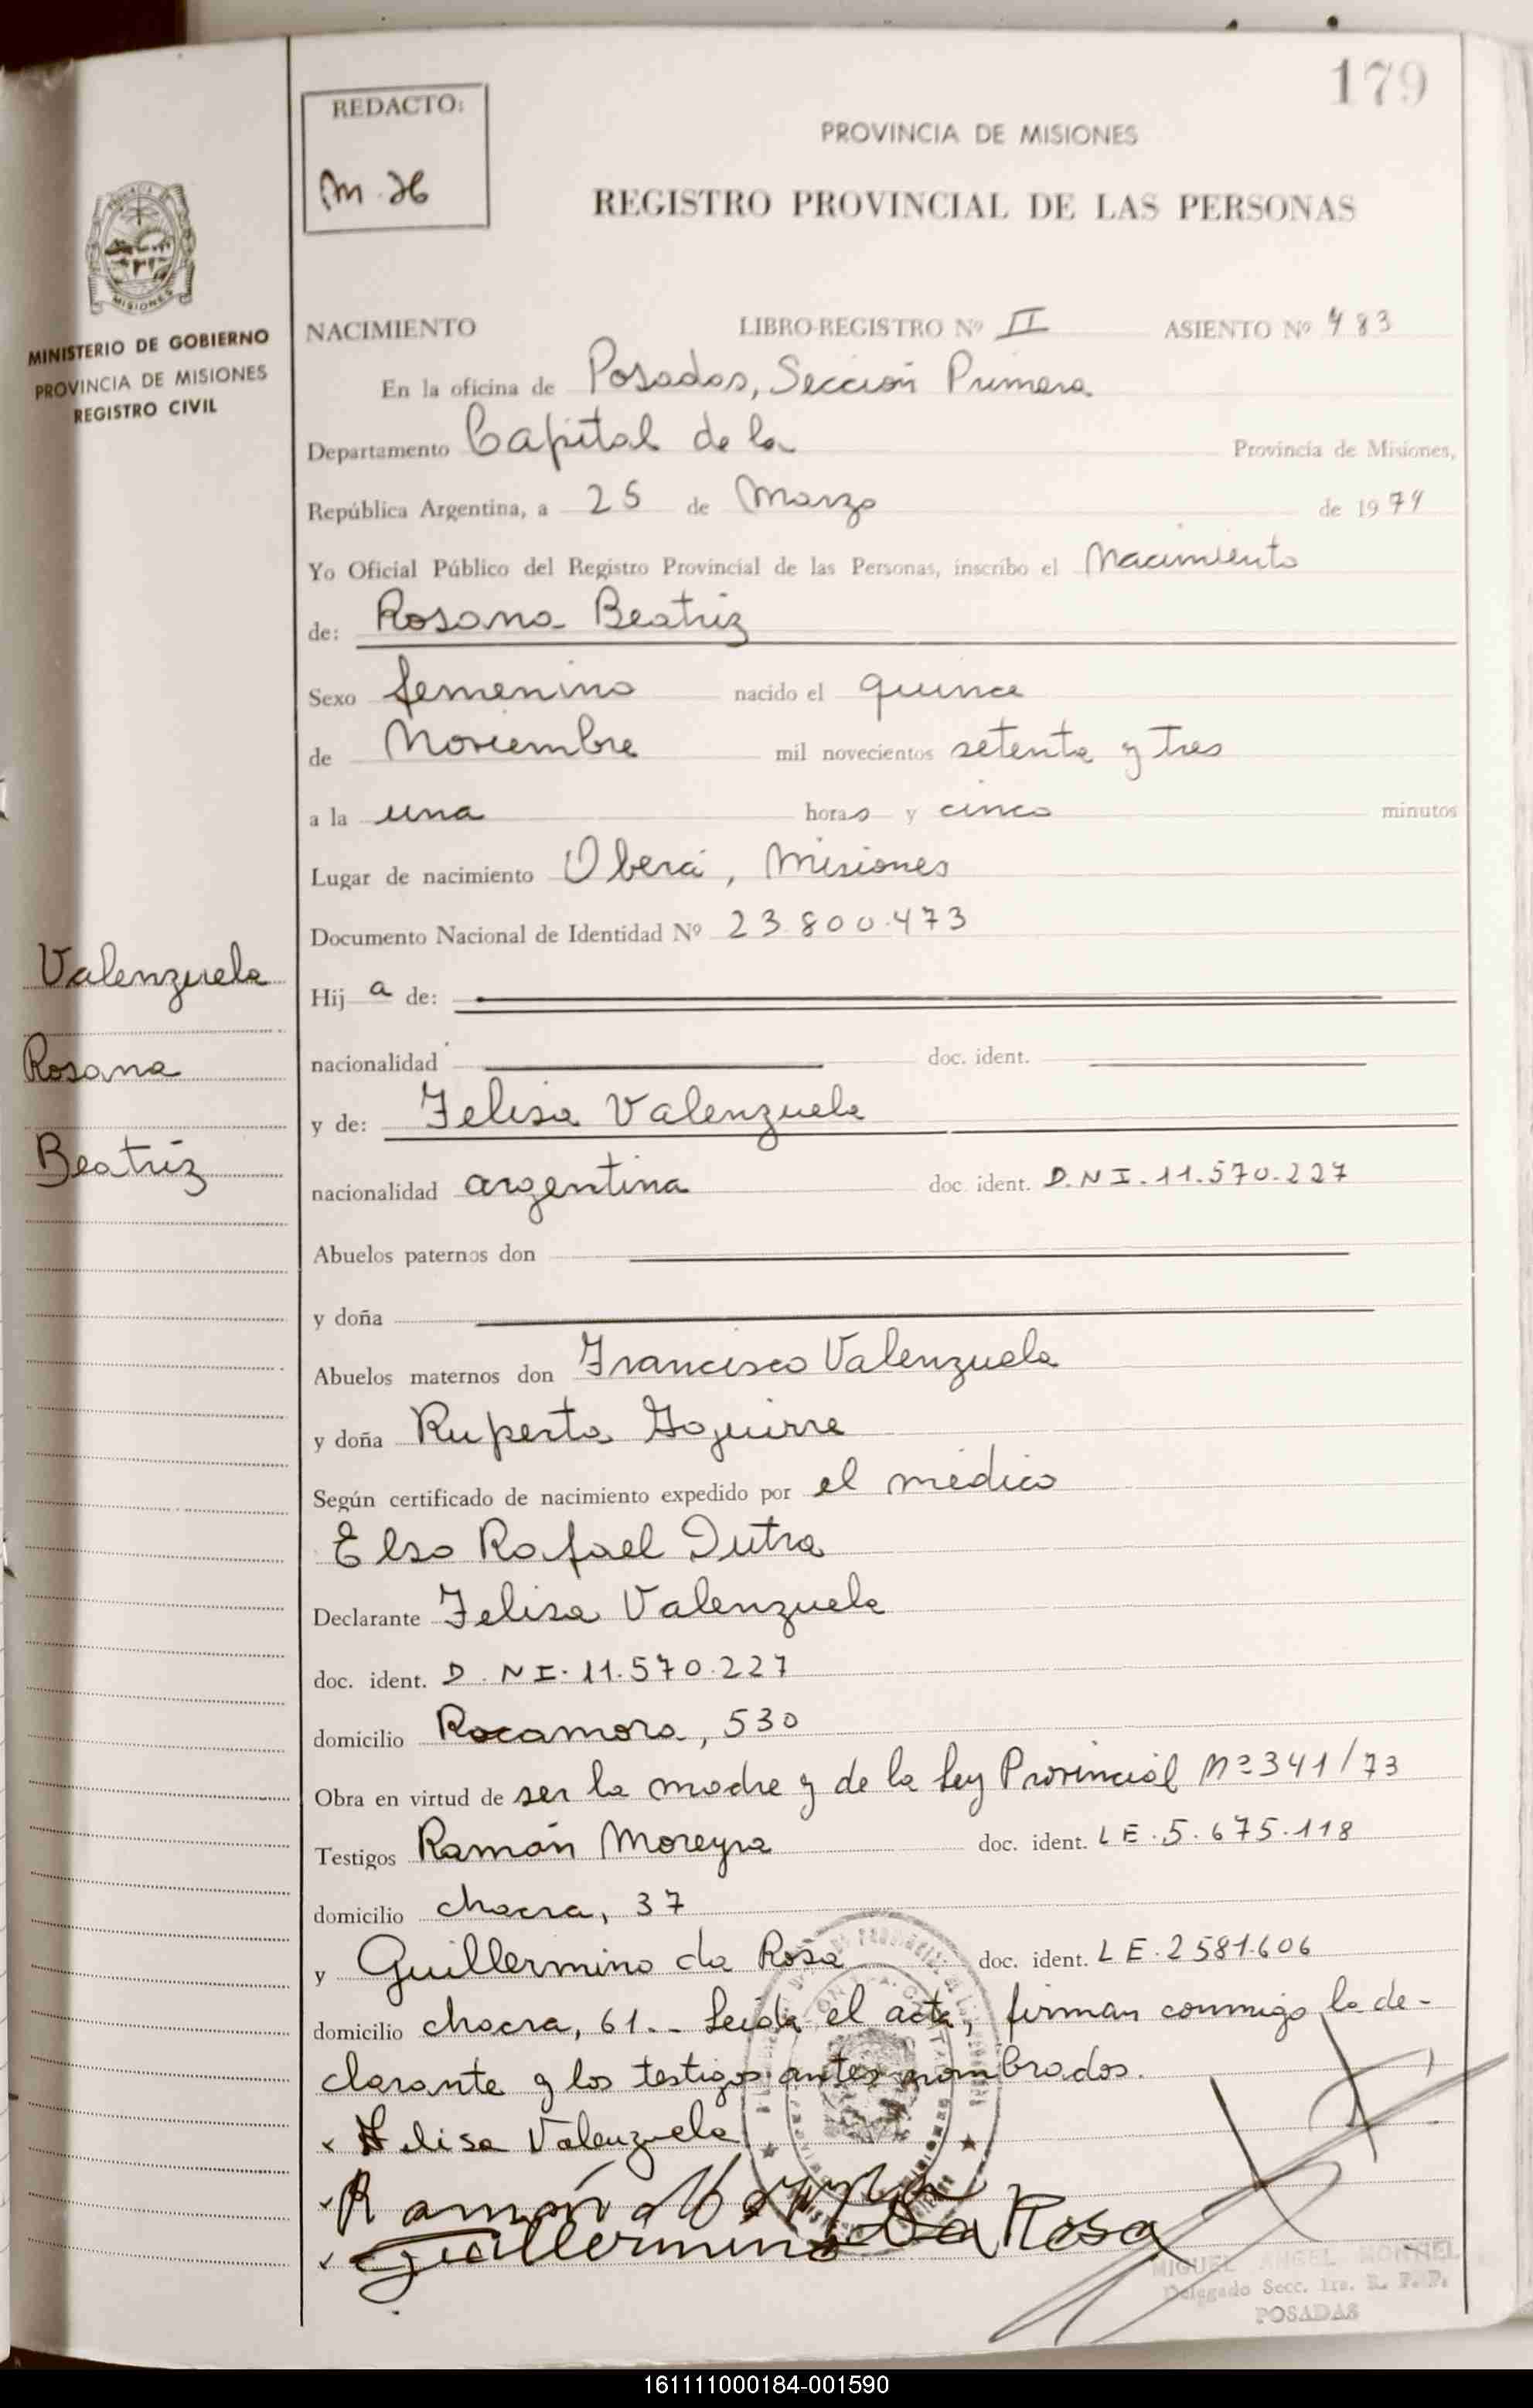 179
REDACTO:
M. H
PROVINCIA DE MISIONES
REGISTRO PROVINCIAL DE LAS PERSONAS
MISIONES
MINISTERIO DE GOBIERNO
PROVINCIA DE MISIONES
REGISTRO CIVIL
NACIMIENTO LIBRO-REGISTRO Nº II ASIENTO Nº 483
En la oficina de Posadas, Sección Primera
Departamento Capital de la Provincia de Misiones,
República Argentina, a 25 de Marzo de 1974
Yo Oficial Público del Registro Provincial de las Personas, inscribo el Nacimiento
de: Rosana Beatriz
Sexo femenino nacido el quince
de Noviembre mil novecientos setenta y tres
a la una horas y cinco minutos
Lugar de nacimiento Oberá, Misiones
Documento Nacional de Identidad Nº 23.800.473
Valenzuela
Hij a de:
Rosana
nacionalidad doc. ident.
y de: Felisa Valenzuela
Beatriz
nacionalidad argentina doc. ident. D.N.I. 11.570.227
Abuelos paternos don
y doña
Abuelos maternos don Francisco Valenzuela
y doña Ruperta Aguirre
Según certificado de nacimiento expedido por el médico
Elso Rafael Dutra
Declarante Felisa Valenzuela
doc. ident. D.N.I. 11.570.227
domicilio Rocamora, 530
Obra en virtud de ser la madre y de la Ley Provincial Nº 341/73
Testigos Ramón Moreyra doc. ident. L E. 5.675.118
domicilio chacra, 37
y Guillermino da Rosa doc. ident. L E. 2581.606
domicilio chacra, 61.- Leída el acta, firman conmigo la de-
clarante y los testigos antes nombrados.
x Felisa Valenzuela
Ramón Moreyra
Guillermino Da Rosa
MIGUEL ANGEL MONTIEL
Delegado Secc. 1ra. R. P. P.
POSADAS
161111000184-001590